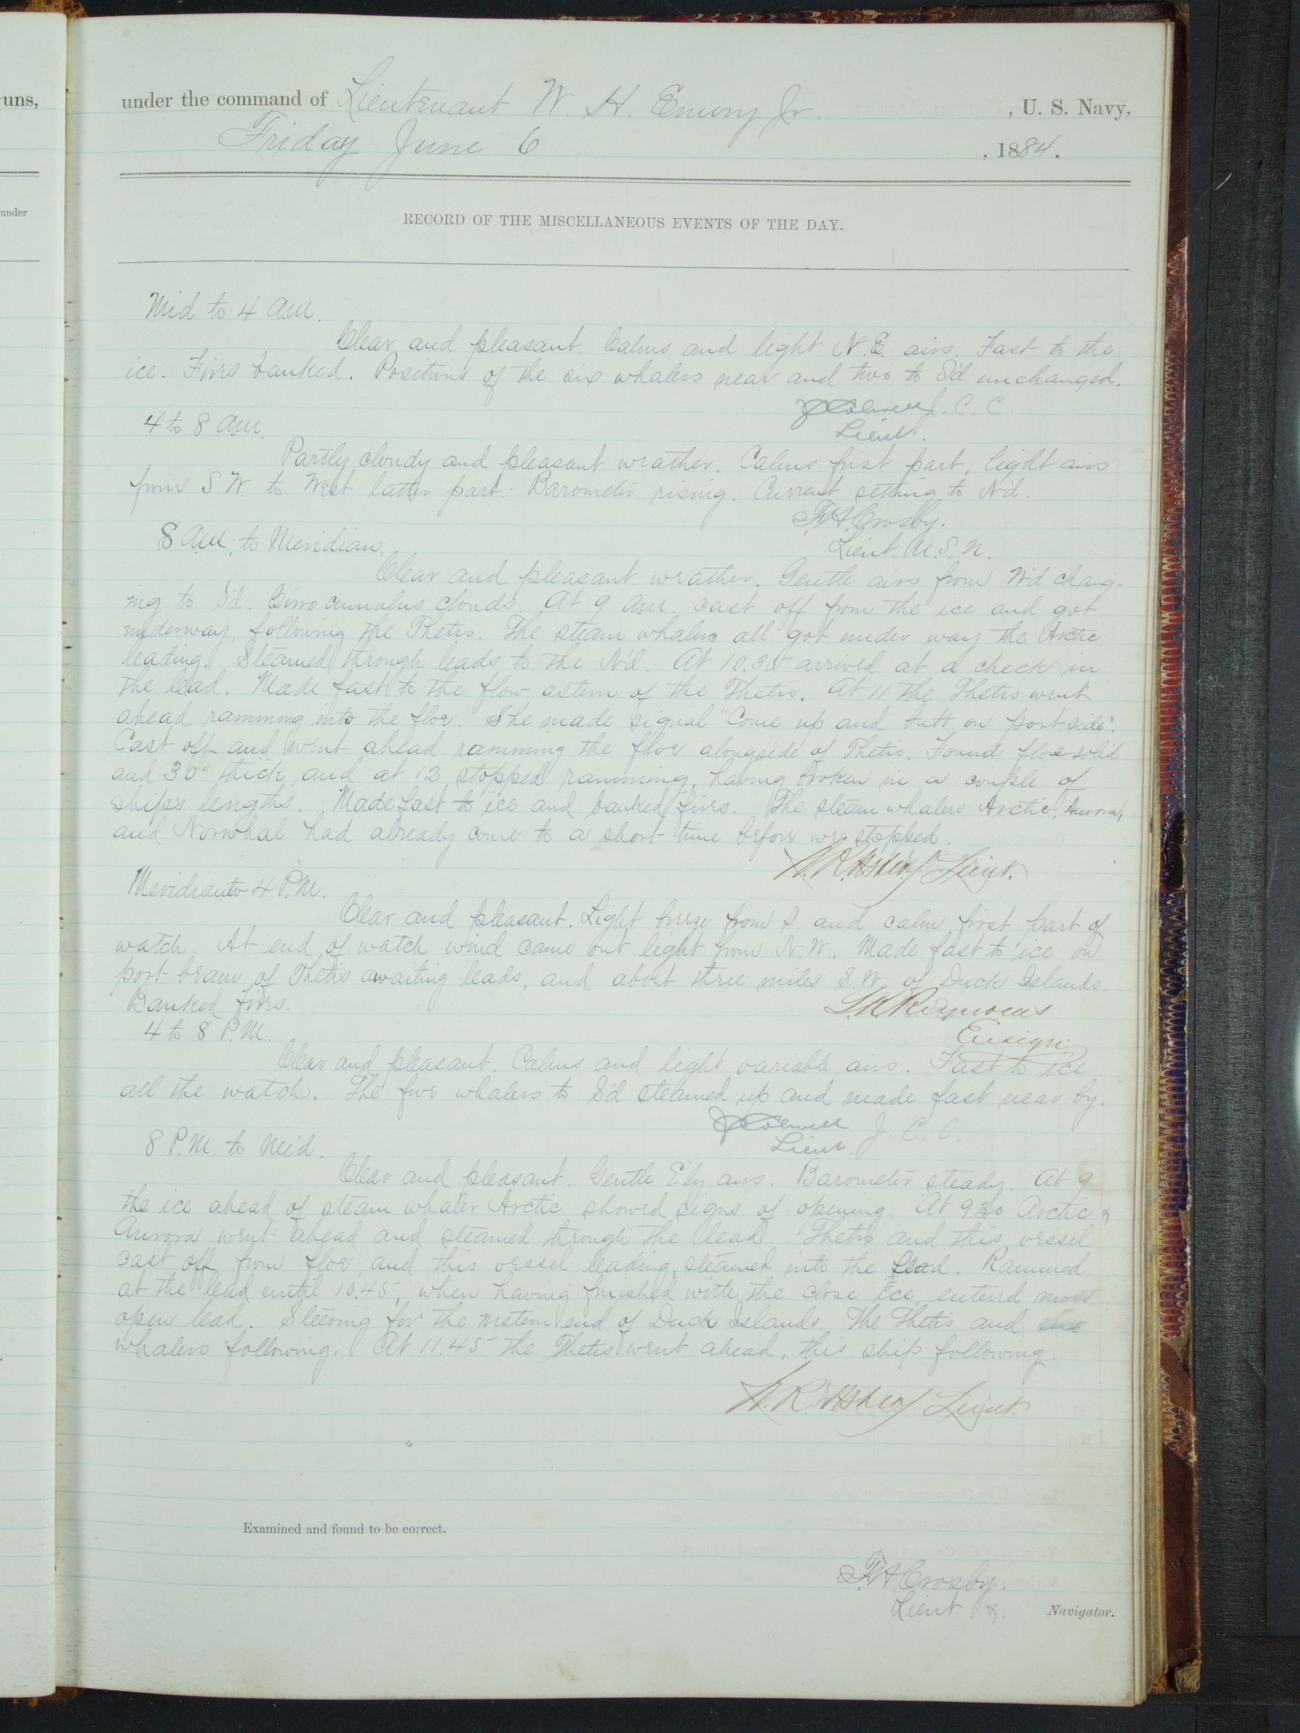 uns,
under
under the command of Lieutenant W. H. Emory Jr. , U. S. Navy,
Friday June 6 , 1884.
RECORD OF THE MISCELLANEOUS EVENTS OF THE DAY.
Mid to 4 a.m.
Clear and pleasant. Calms and light N.E. airs. Fast to the
ice. Fires banked. Positions of the six whalers near and two to S'd unchanged.
J. C. Colwell J. C. C.
Lieut.
4 to 8 a.m.
Partly cloudy and pleasant weather. Calms first part, light airs
from S W. to West latter part. Barometer rising. Current setting to N'd.
F. H. Crosby.
Lieut. U.S.N.
8 a.m. to Meridian.
Clear and pleasant weather. Gentle airs from N'd chang-
ing to S'd. Cirro cumulus clouds. At 9 a.m. cast off from the ice and got
underway, following the Thetis. The steam whalers all got under way the Arctic
leading. Steamed through leads to the N'd. At 10.30 arrived at a check in
the lead. Made fast to the flow astern of the Thetis. At 11 the Thetis went
ahead ramming into the floe. She made signal "Come up and butt on port side".
Cast off and went ahead ramming the floe alongside of Thetis. Found floe solid
and 30" thick, and at 12 stopped ramming, having broken in a couple of
ship's lengths. Made fast to ice and banked fires. The steam whalers Arctic, Aurora,
and Norwhal had already come to a short time before we stopped.
Lieut.
Meridian to 4 P.M.
Clear and pleasant. Light breeze from S and calm first part of
watch. At end of watch wind came out light from N.W. Made fast to ice on
port beam of Thetis awaiting leads, and about three miles S.W. of Duck Islands.
Banked fires.
L. K. Reynolds
Ensign.
4 to 8 P.M.
Clear and pleasant. Calms and light variable airs. Fast to ice
all the watch. The five whalers to S'd steamed up and made fast near by.
J. C. Colwell J. C. C.
Lieut.
8 P.M. to Mid.
Clear and pleasant. Gentle E'ly airs. Barometer steady. At 9
the ice ahead of steam whaler Arctic showed signs of opening. At 9 30 Arctic &
Aurora went ahead and steamed through the lead. Thetis and this vessel
cast off from floe, and this vessel leading, steamed into the lead. Rammed
at the lead until 10.45, when having finished with the close ice, entered more
open lead. Steering for the western end of Duck Islands. The Thetis and
whalers following. At 11.45 the Thetis went ahead, this ship following.
Lieut.
Examined and found to be correct.
F. H. Crosby.
Lieut &. Navigator.